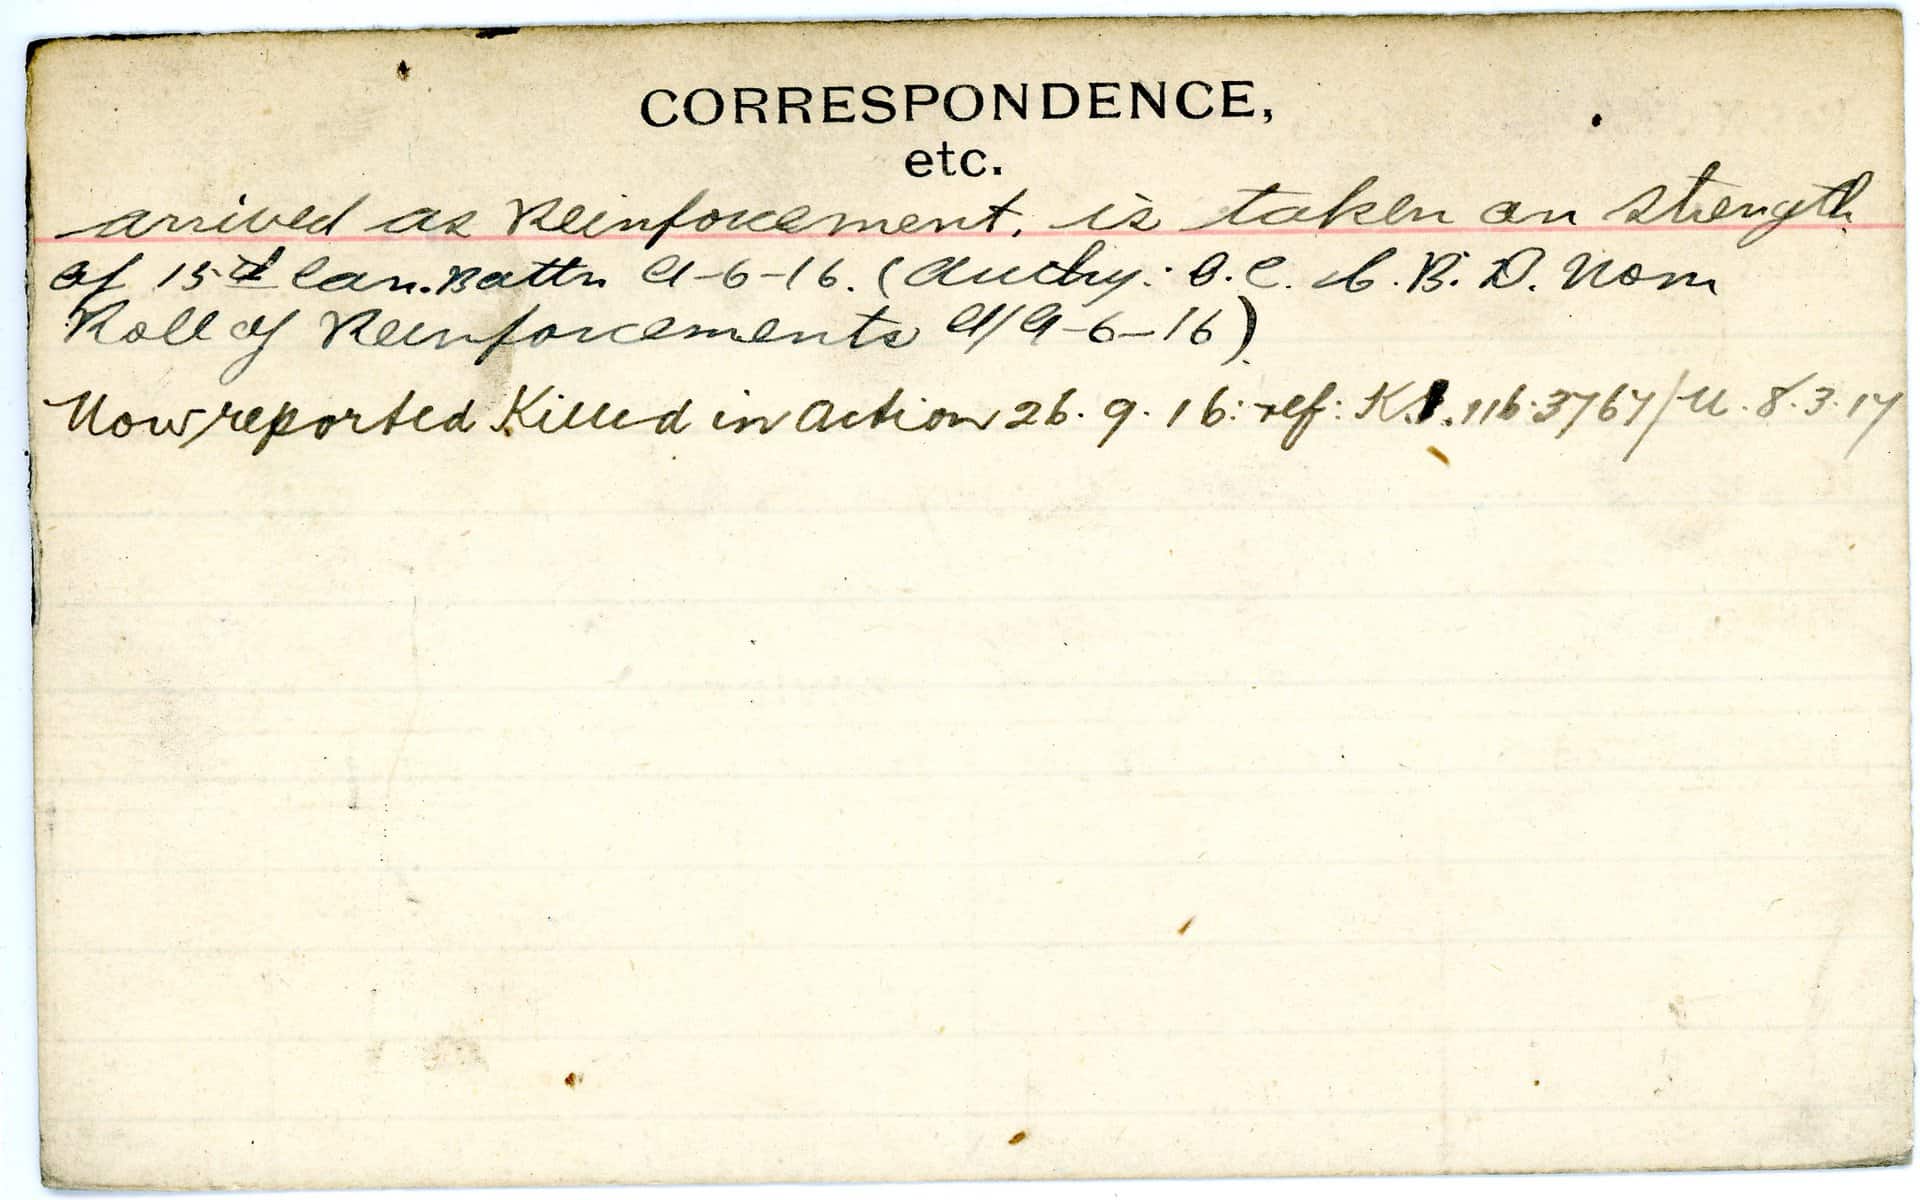 CORRESPONDENCE,
etc.
arrived as Reinforcement, is taken on strength
of 15th Can. Battn 9-6-16. (Authy: O.C. C.B.D. Nom
Roll of Reinforcements d/9-6-16)
Now reported Killed in action 26.9.16: ref: K. 116.3767/U. 8.3.17